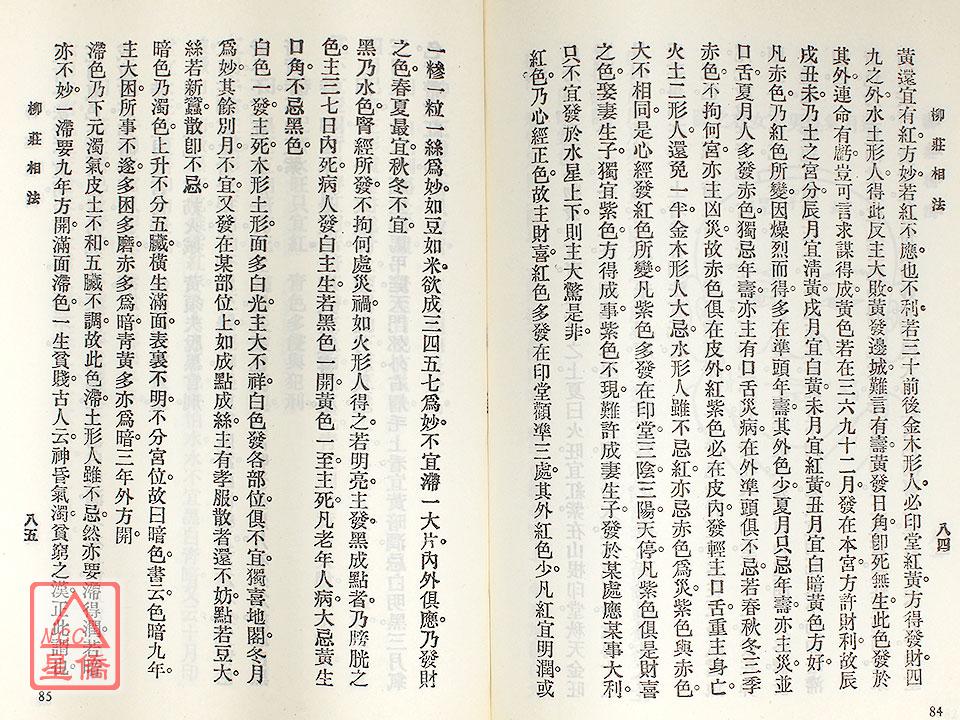 柳莊相法
八四
黃還宜有紅方妙若紅不應也不利若三十前後金木形人必印堂紅黃方得發財四
九之外水土形人得此反主大敗黃發邊城難言有壽黃發日角卽死無生此色發於
其外連命有虧豈可言求謀得成黃色若在三六九十二月發在本宮方許財利故辰
戌丑未乃土之宮分辰月宜淸黃戌月宜白黃未月宜紅黃丑月宜白暗黃色方好
凡赤色乃紅色所變因燥烈而得多在準頭年壽其外色少夏月只忌年壽亦主災並
口舌夏月人多發赤色獨忌年壽亦主有口舌災病在外準頭俱不忌若春秋冬三季
赤色不拘何宮亦主凶災故赤色俱在皮外紅紫色必在皮內發輕主口舌重主身亡
火土二形人還免一半金木形人大忌水形人雖不忌紅亦忌赤色爲災紫色與赤色
大不相同是心經發紅色所變凡紫色多發在印堂三陰三陽天停凡紫色俱是財喜
之色娶妻生子獨宜紫色方得成事紫色不現難許成妻生子發於某處應某事大利
只不宜發於水星上下則主大驚是非
紅色乃心經正色故主財喜紅色多發在印堂顴準三處其外紅色少凡紅宜明潤或
84
一糝一粒一絲爲妙如豆如米欲成三四五七爲妙不宜滯一大片內外俱應乃發財
之色春夏最宜秋冬不宜
黑乃水色腎經所發不拘何處災禍如火形人得之若明亮主發黑成點者乃膀胱之
色主三七日內死病人發白主生若黑色一開黃色一至主死凡老年人病大忌黃生
口角不忌黑色
白色一發主死木形土形面多白光主大不祥白色發各部位俱不宜獨喜地閣冬月
爲妙其餘別月不宜又發在某部位上如成點成絲主有孝服散者還不妨點若豆大
絲若新蠶散卽不忌
暗色乃濁色上升不分五臟橫生滿面表裏不明不分宮位故曰暗色書云色暗九年
主大困所事不遂多困多磨赤多爲暗靑黃多亦爲暗三年外方開
滯色乃下元濁氣皮土不和五臟不調故此色滯土形人雖不忌然亦要滯得潤若暗
亦不妙一滯要九年方開滿面滯色一生貧賤古人云神昏氣濁貧窮之漢正此謂也
柳莊相法
八五
85
NCC
星僑